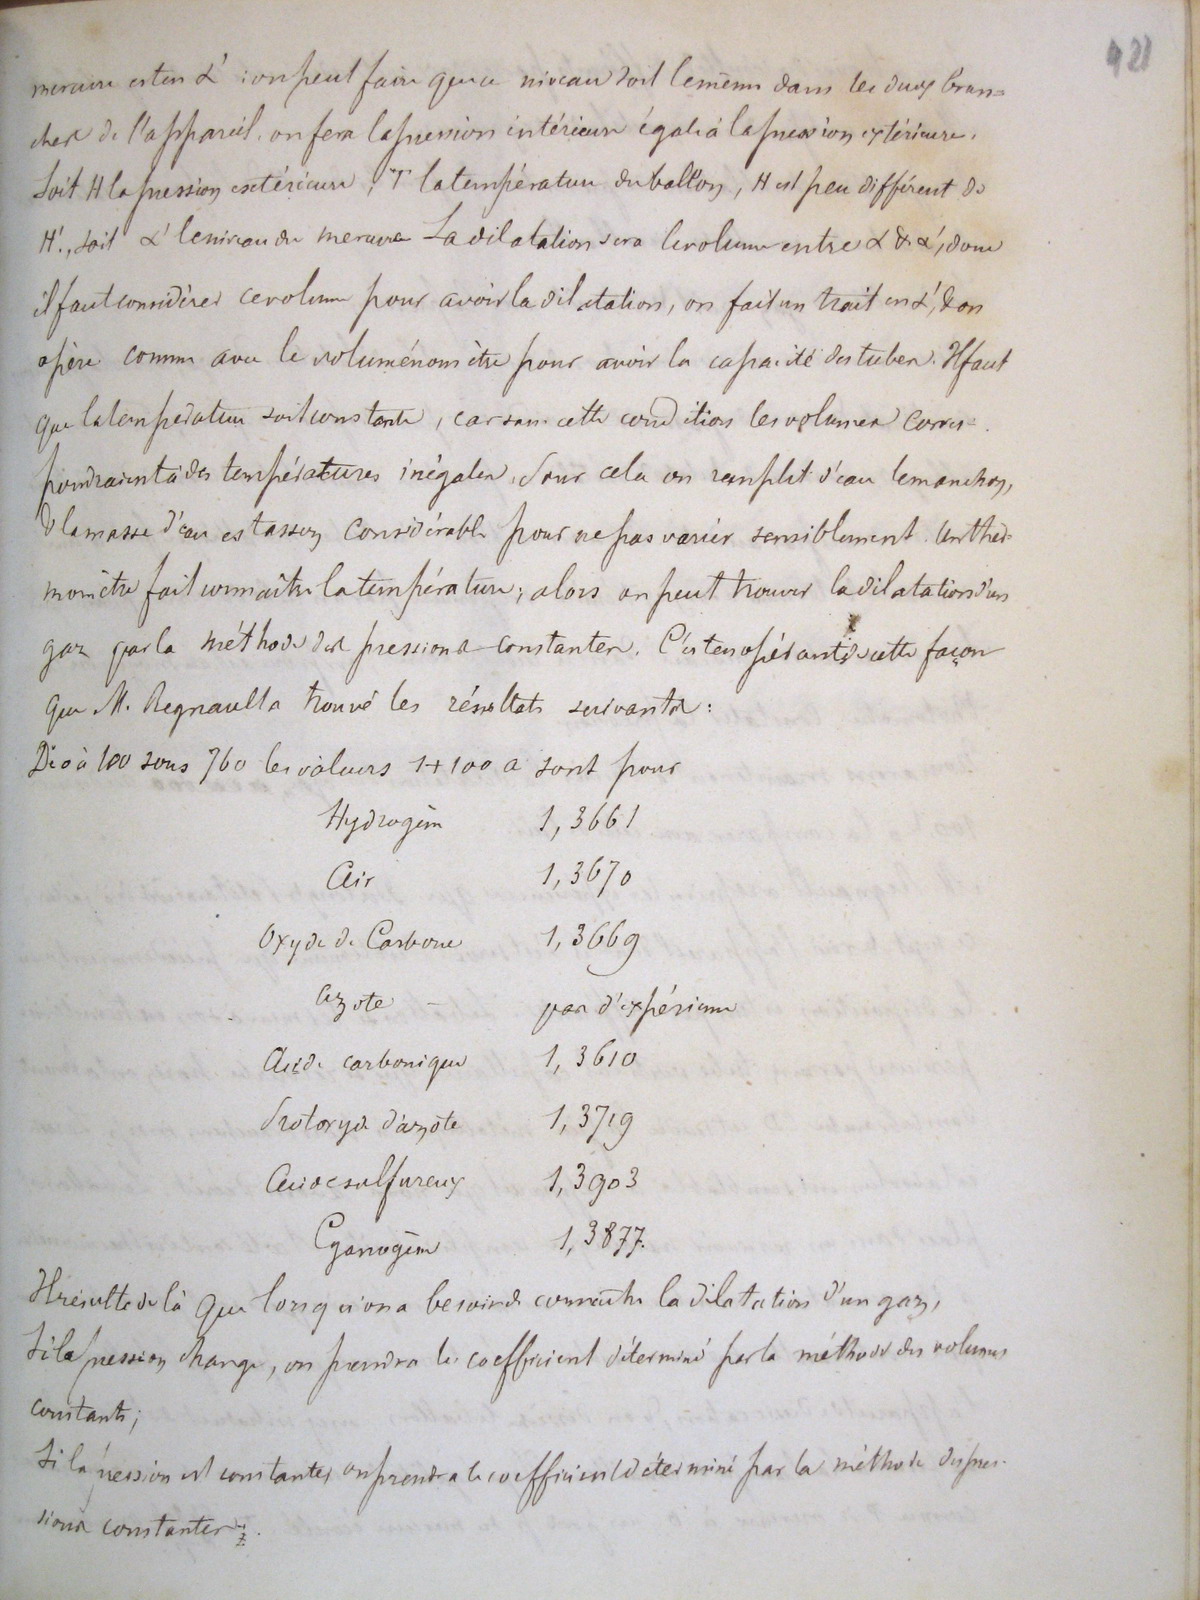 421
mercure est en α' : on peut faire que ce niveau soit le même dans les deux bran=
ches de l'appareil. on fera la pression intérieure égale à la pression extérieure.
Soit H la pression extérieure, T la température du ballon, H est peu différent de
H'., soit α' le niveau du mercure La dilatation sera le volume entre α & α', donc
il faut considérer ce volume pour avoir la dilatation, on fait un trait en α', & on
opère comme avec le voluménomètre pour avoir la capacité des tubes. Il faut
que la température soit constante, car sans cette condition les volumes corres=
pondraient à des températures inégales. Pour cela on remplit d'eau le manchon,
& la masse d'eau est assez considérable pour ne pas varier sensiblement. Un ther=
momètre fait connaître la température; alors on peut trouver la dilatation d'un
gaz par la méthode des pressions constantes. C'est en opérant de cette façon
que M. Regnault a trouvé les résultats suivants :
De 0 à 100 sous 760 les valeurs 1+100 a sont pour
Hydrogène 1,3661
Air 1,3670
Oxyde de Carbone 1,3669
azote – pas d'expérience
Acide carbonique 1,3610
Protoxyde d'azote 1,3719
Acide sulfureux 1,3903
Cyanogène 1,3877.
Il résulte de là que lorsqu'on a besoin de connaître la dilatation d'un gaz,
Si la pression change, on prendra le coefficient déterminé par la méthode des volumes
constants;
Si la pression est constante, on prendra le coefficient déterminé par la méthode des pres-
sions constantes.